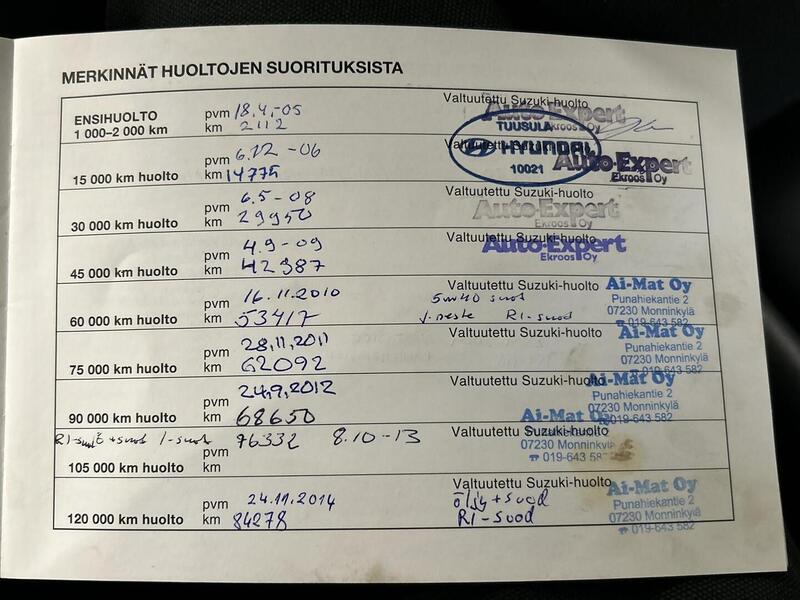 MERKINNÄT HUOLTOJEN SUORITUKSISTA
ENSIHUOLTO
1 000–2 000 km
pvm 18.4.-05
km 2112
Valtuutettu Suzuki-huolto
Auto-Expert
Ekroos Oy
TUUSULA
HYUNDAI
10021
15 000 km huolto
pvm 6.12 -06
km 14775
Valtuutettu Suzuki-huolto
Auto-Expert
Ekroos Oy
30 000 km huolto
pvm 6.5-08
km 29950
Valtuutettu Suzuki-huolto
Auto-Expert
Ekroos Oy
45 000 km huolto
pvm 4.9-09
km 42987
Valtuutettu Suzuki-huolto
Auto-Expert
Ekroos Oy
60 000 km huolto
pvm 16.11.2010
km 53417
Valtuutettu Suzuki-huolto
5w40 suod
j-neste RI-suod
Ai-Mat Oy
Punahiekantie 2
07230 Monninkylä
☎ 019-643 582
75 000 km huolto
pvm 28.11.2011
km 62092
Valtuutettu Suzuki-huolto
Ai-Mat Oy
Punahiekantie 2
07230 Monninkylä
☎ 019-643 582
90 000 km huolto
pvm 24.9.2012
km 68650
Valtuutettu Suzuki-huolto
Ai-Mat Oy
Punahiekantie 2
07230 Monninkylä
019-643 582
105 000 km huolto
pvm 76332 8.10-13
km
Valtuutettu Suzuki-huolto
Ai-Mat Oy
07230 Monninkylä
☎ 019-643 58
120 000 km huolto
pvm 24.11.2014
km 84278
Valtuutettu Suzuki-huolto
öljy + suod
RI-suod
Ai-Mat Oy
Punahiekantie 2
07230 Monninkylä
☎ 019-643 582